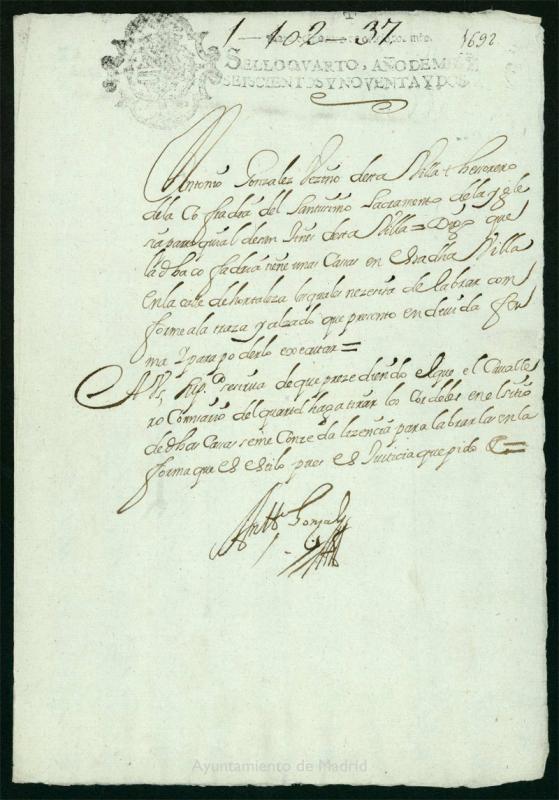 1-102-37
1692
SELLO QVARTO, AÑO DE MIL
SEISCIENTOS Y NOVENTA Y DOS
Antonio Gonzalez Vezino desta Villa thesorero
de la Cofradia del Santisimo Sacramento de la ygle
sia parroquial de sn Jines desta Villa = Digo que
la dha cofradia tiene unas Casas en esta dha Villa
en la calle de hortaleza las quales nezesita de labrar con
forme a la traza y alzado que presento en devida for
ma Y para poderlo executar =
A VS, supco se sirva de que prezediendo el que el Cavalle
ro Comisario del quartel haga tirar los Cordeles en el sitio
de dhas Casas se me Conzeda lizencia para labrarlas en la
forma que es estilo pues es Justicia que pido &
Antto Gonzalez
Ayuntamiento de Madrid